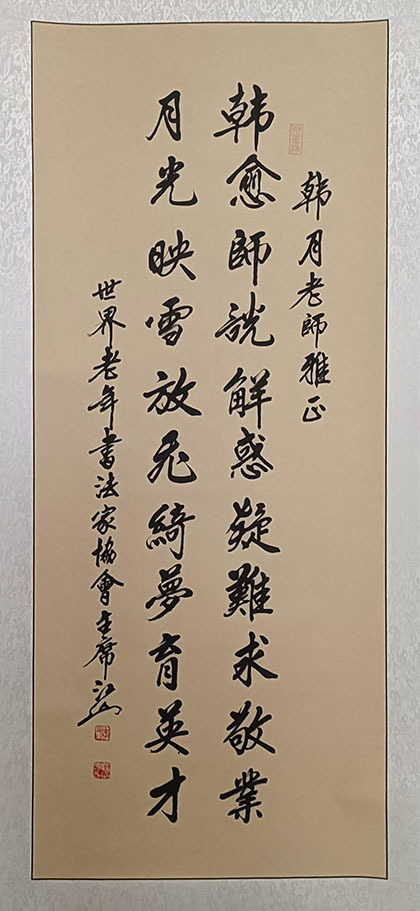 韩月老師雅正
韩愈師説解惑疑難求敬業
月光映雪放飛綺夢育英才
世界老年書法家協會主席